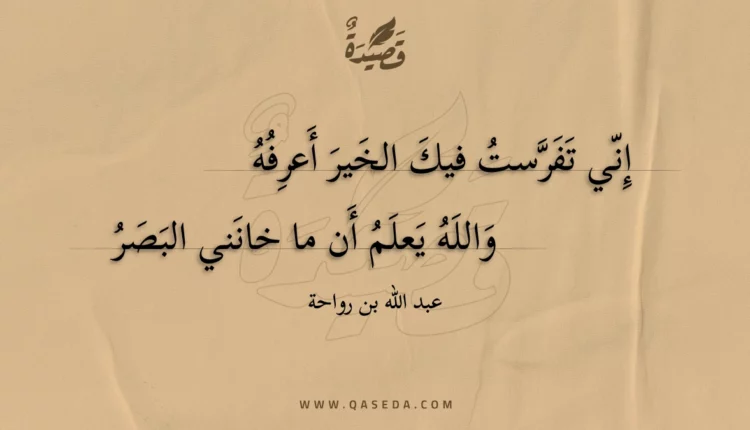 قَصِيْدَةٌ
إِنّي تَفَرَّستُ فيكَ الخَيرَ أَعرِفُهُ
وَاللَهُ يَعلَمُ أَن ما خانَني البَصَرُ
عبد الله بن رواحة
WWW.QASEDA.COM